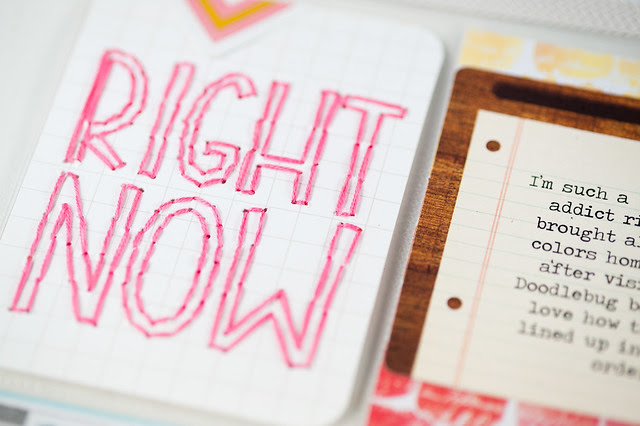 RIGHT
NOW
I'm such a
addict
brought
colors hom
after
Doodlebug
love how
lined up in